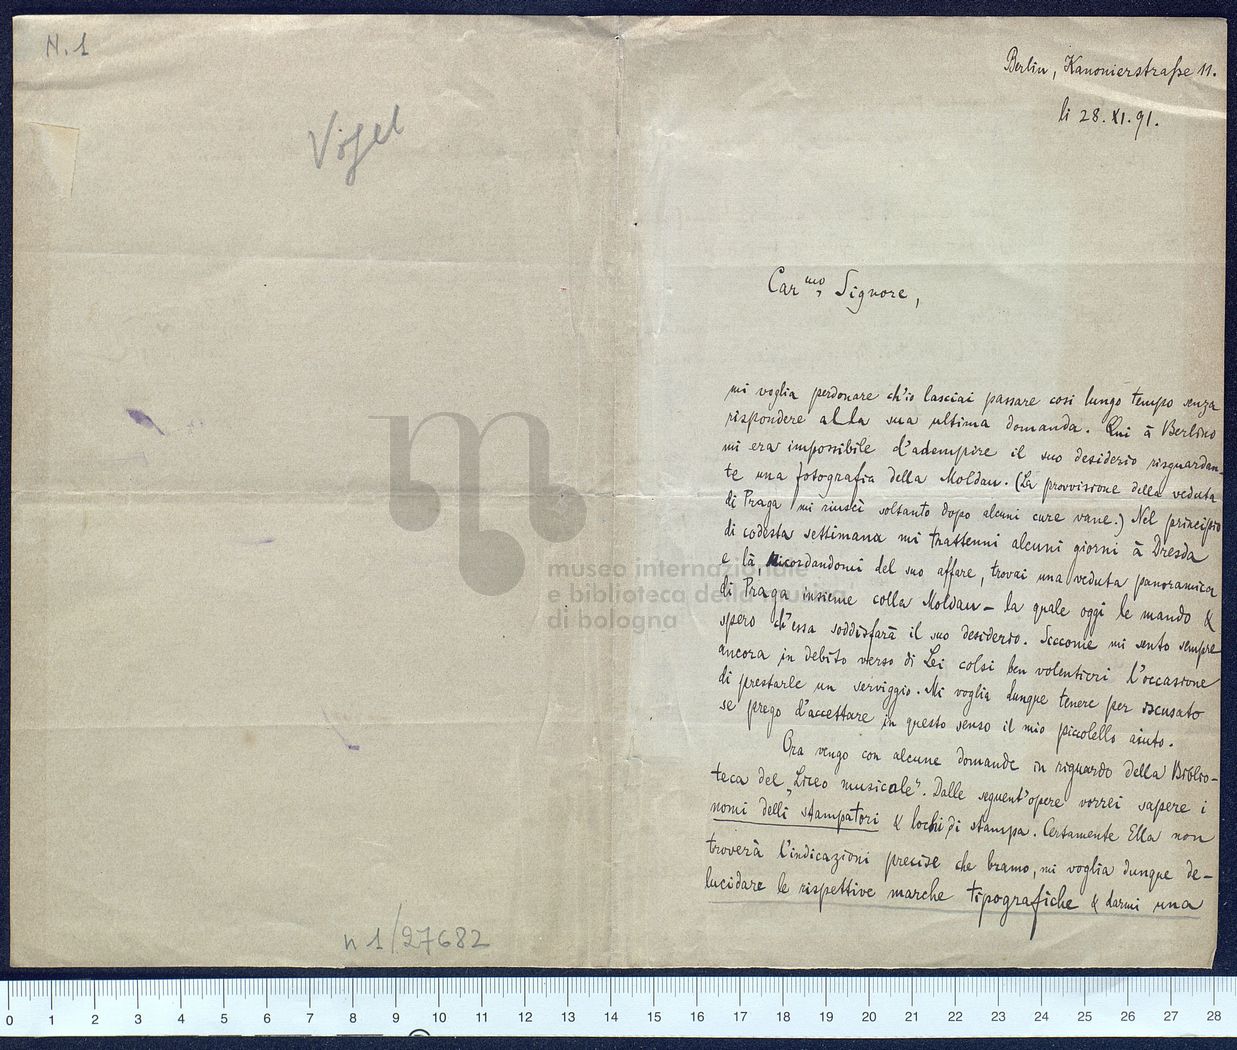 N. 1
Vogel
n 1/27682
Berlin, Kanonierstraße 11.
li 28. XI. 91.
Car.mo Signore,
mi voglia perdonare ch'io lasciai passare così lungo tempo senza
rispondere alla sua ultima domanda. Qui à Berlino
mi era impossibile d'adempire il suo desiderio risguardan-
te una fotografia della Moldau. (La provvisione della veduta
di Praga mi riuscì soltanto dopo alcuni cure vane.) Nel principio
di codesta settimana mi trattenni alcuni giorni à Dresda
e là, ricordandomi del suo affare, trovai una veduta panoramica
di Praga insieme colla Moldau – la quale oggi le mando &
spero ch'essa soddisfarà il suo desiderio. Siccome mi sento sempre
ancora in debito verso di Lei colsi ben volentieri l'occasione
di prestarle un serviggio. Mi voglia dunque tenere per iscusato
se prego d'accettare in questo senso il mio piccolello aiuto.
Ora vengo con alcune domande in riguardo della Biblio-
teca del „Liceo musicale". Dalle seguent'opere vorrei sapere i
nomi delli stampatori & lochi di stampa. Certamente Ella non
troverà l'indicazioni precise che bramo, mi voglia dunque de-
lucidare le rispettive marche tipografiche & darmi una
museo internazionale
e biblioteca della musica
di bologna
0 1 2 3 4 5 6 7 8 9 10 11 12 13 14 15 16 17 18 19 20 21 22 23 24 25 26 27 28